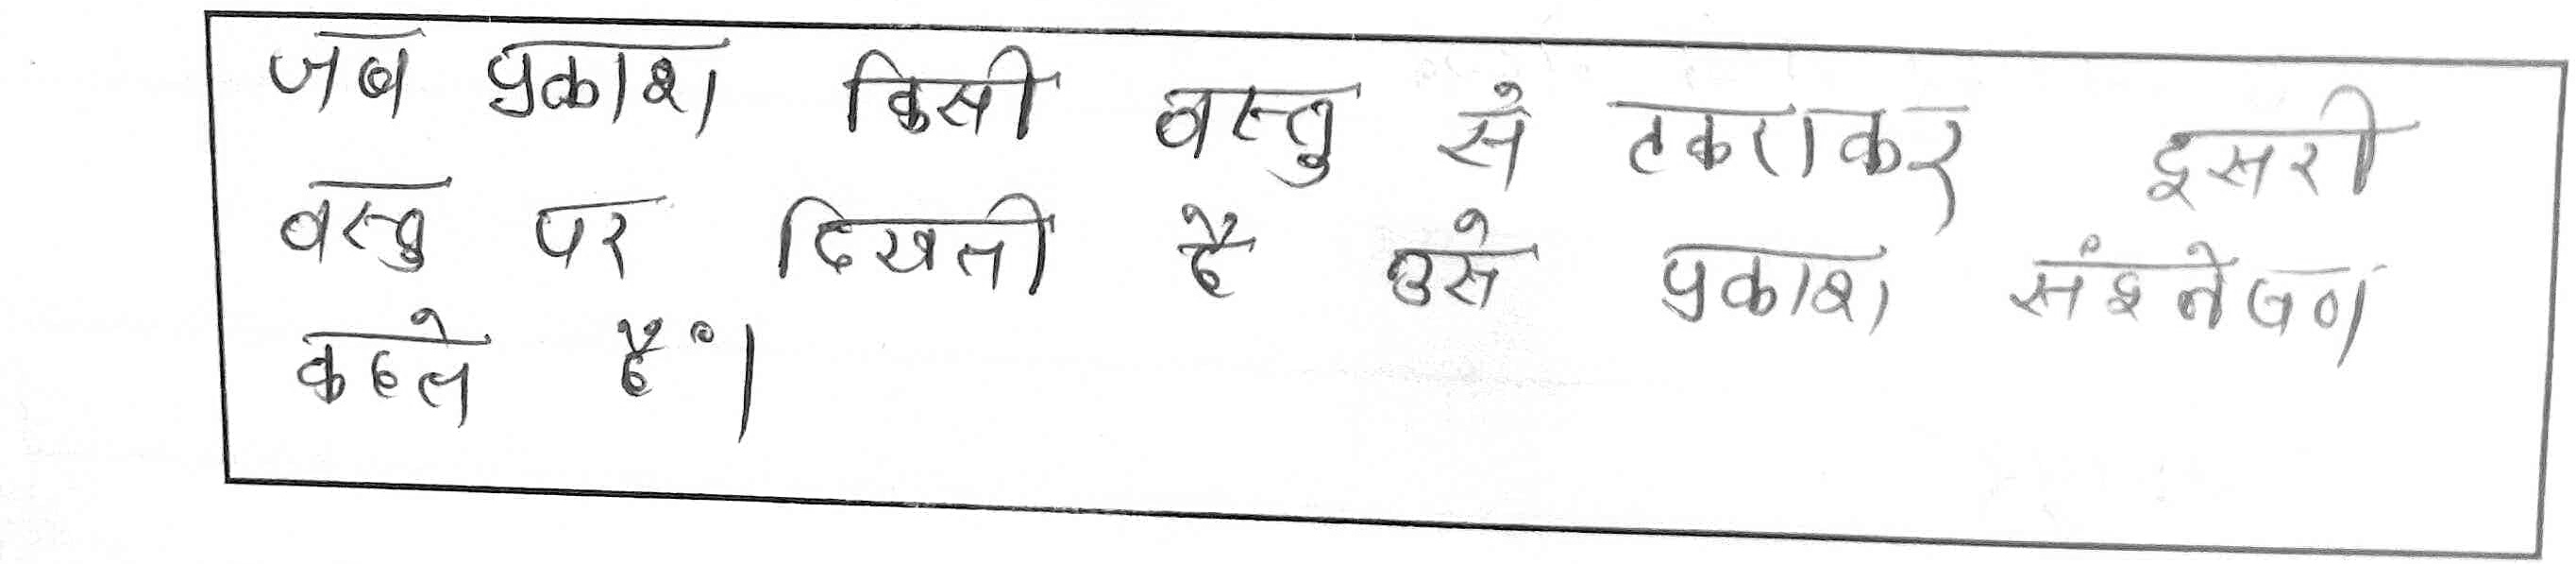 जब प्रकाश किसी वस्तु से टकराकर दूसरी
वस्तु पर दिखती है उसे प्रकाश संश्लेषण
कहते हैं।